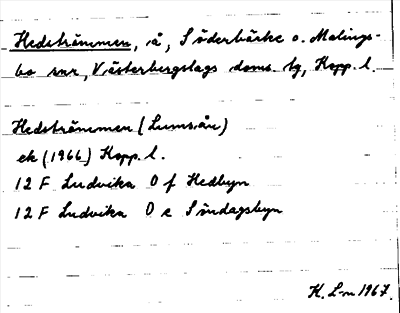 Hedströmmen, å, Söderbärke o. Malings-
bo snr, Västerbergslags doms. tg, Kopp. l.
Hedströmmen (Lumsån)
ek (1966) Kopp. l.
12 F Ludvika 0 f Hedbyn
12 F Ludvika 0 e Söndagsbyn
K. L-m 1967.